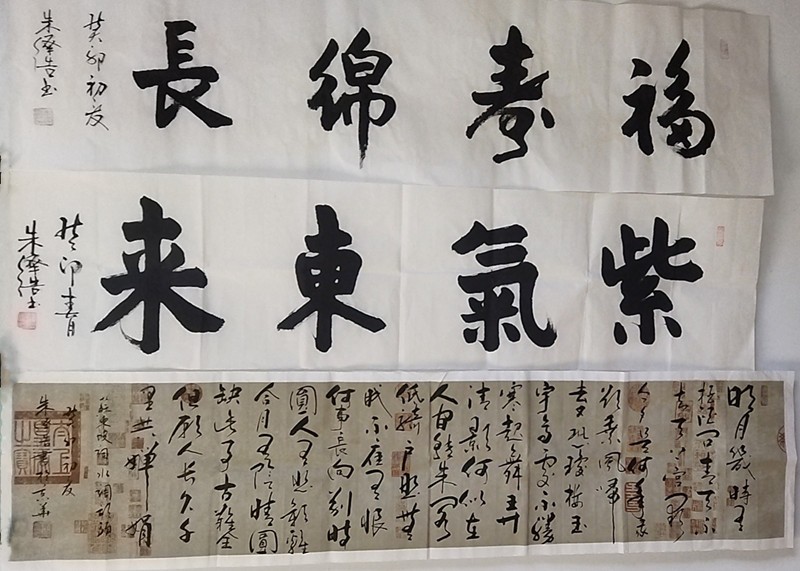 福寿綿長
癸卯初夏
朱澤浩书
紫氣東来
癸卯春月
朱澤浩书
明月幾時有
把酒问青天不
知天上宫闕
今夕是何年我
欲乘風歸
去又恐瓊樓玉
宇高處不勝
寒起舞弄
清影何似在
人间轉朱阁
低綺户照無
眠不應有恨
何事長向别時
圓人有悲歡離
合月有陰晴圓
缺此事古難全
但願人长久千
里共嬋娟
蘇東坡词水调歌頭
癸卯初夏
朱澤浩書於京華